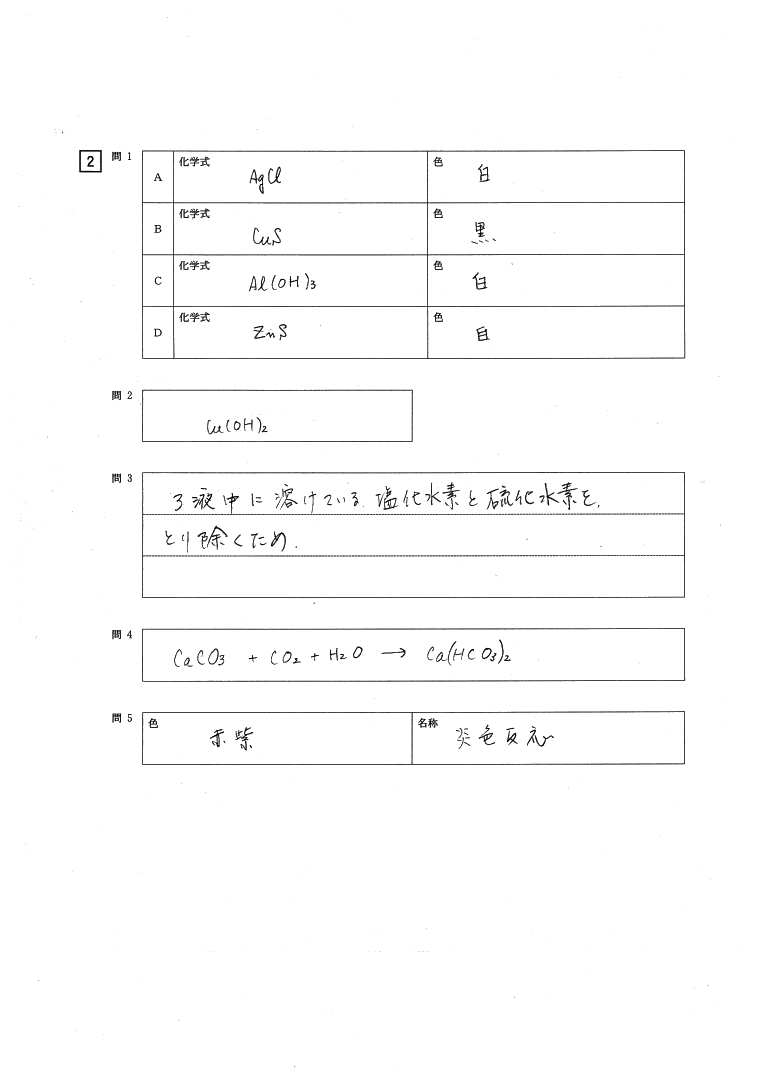 2 問 1
A 化学式 AgCl 色 白
B 化学式 CuS 色 黒
C 化学式 Al(OH)3 色 白
D 化学式 ZnS 色 白
問 2 Cu(OH)2
問 3 ろ液中に溶けている塩化水素と硫化水素を、
とり除くため.
問 4 CaCO3 + CO2 + H2O → Ca(HCO3)2
問 5 色 赤紫 名称 炎色反応